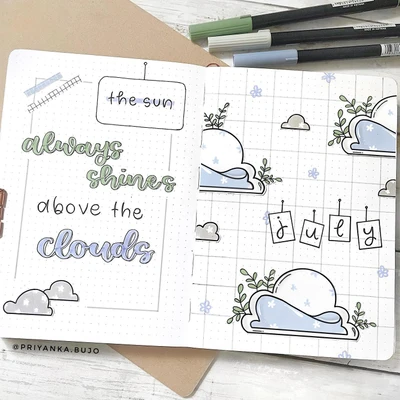 the sun
always
shines
above the
clouds
july
@PRIYANKA.BUJO